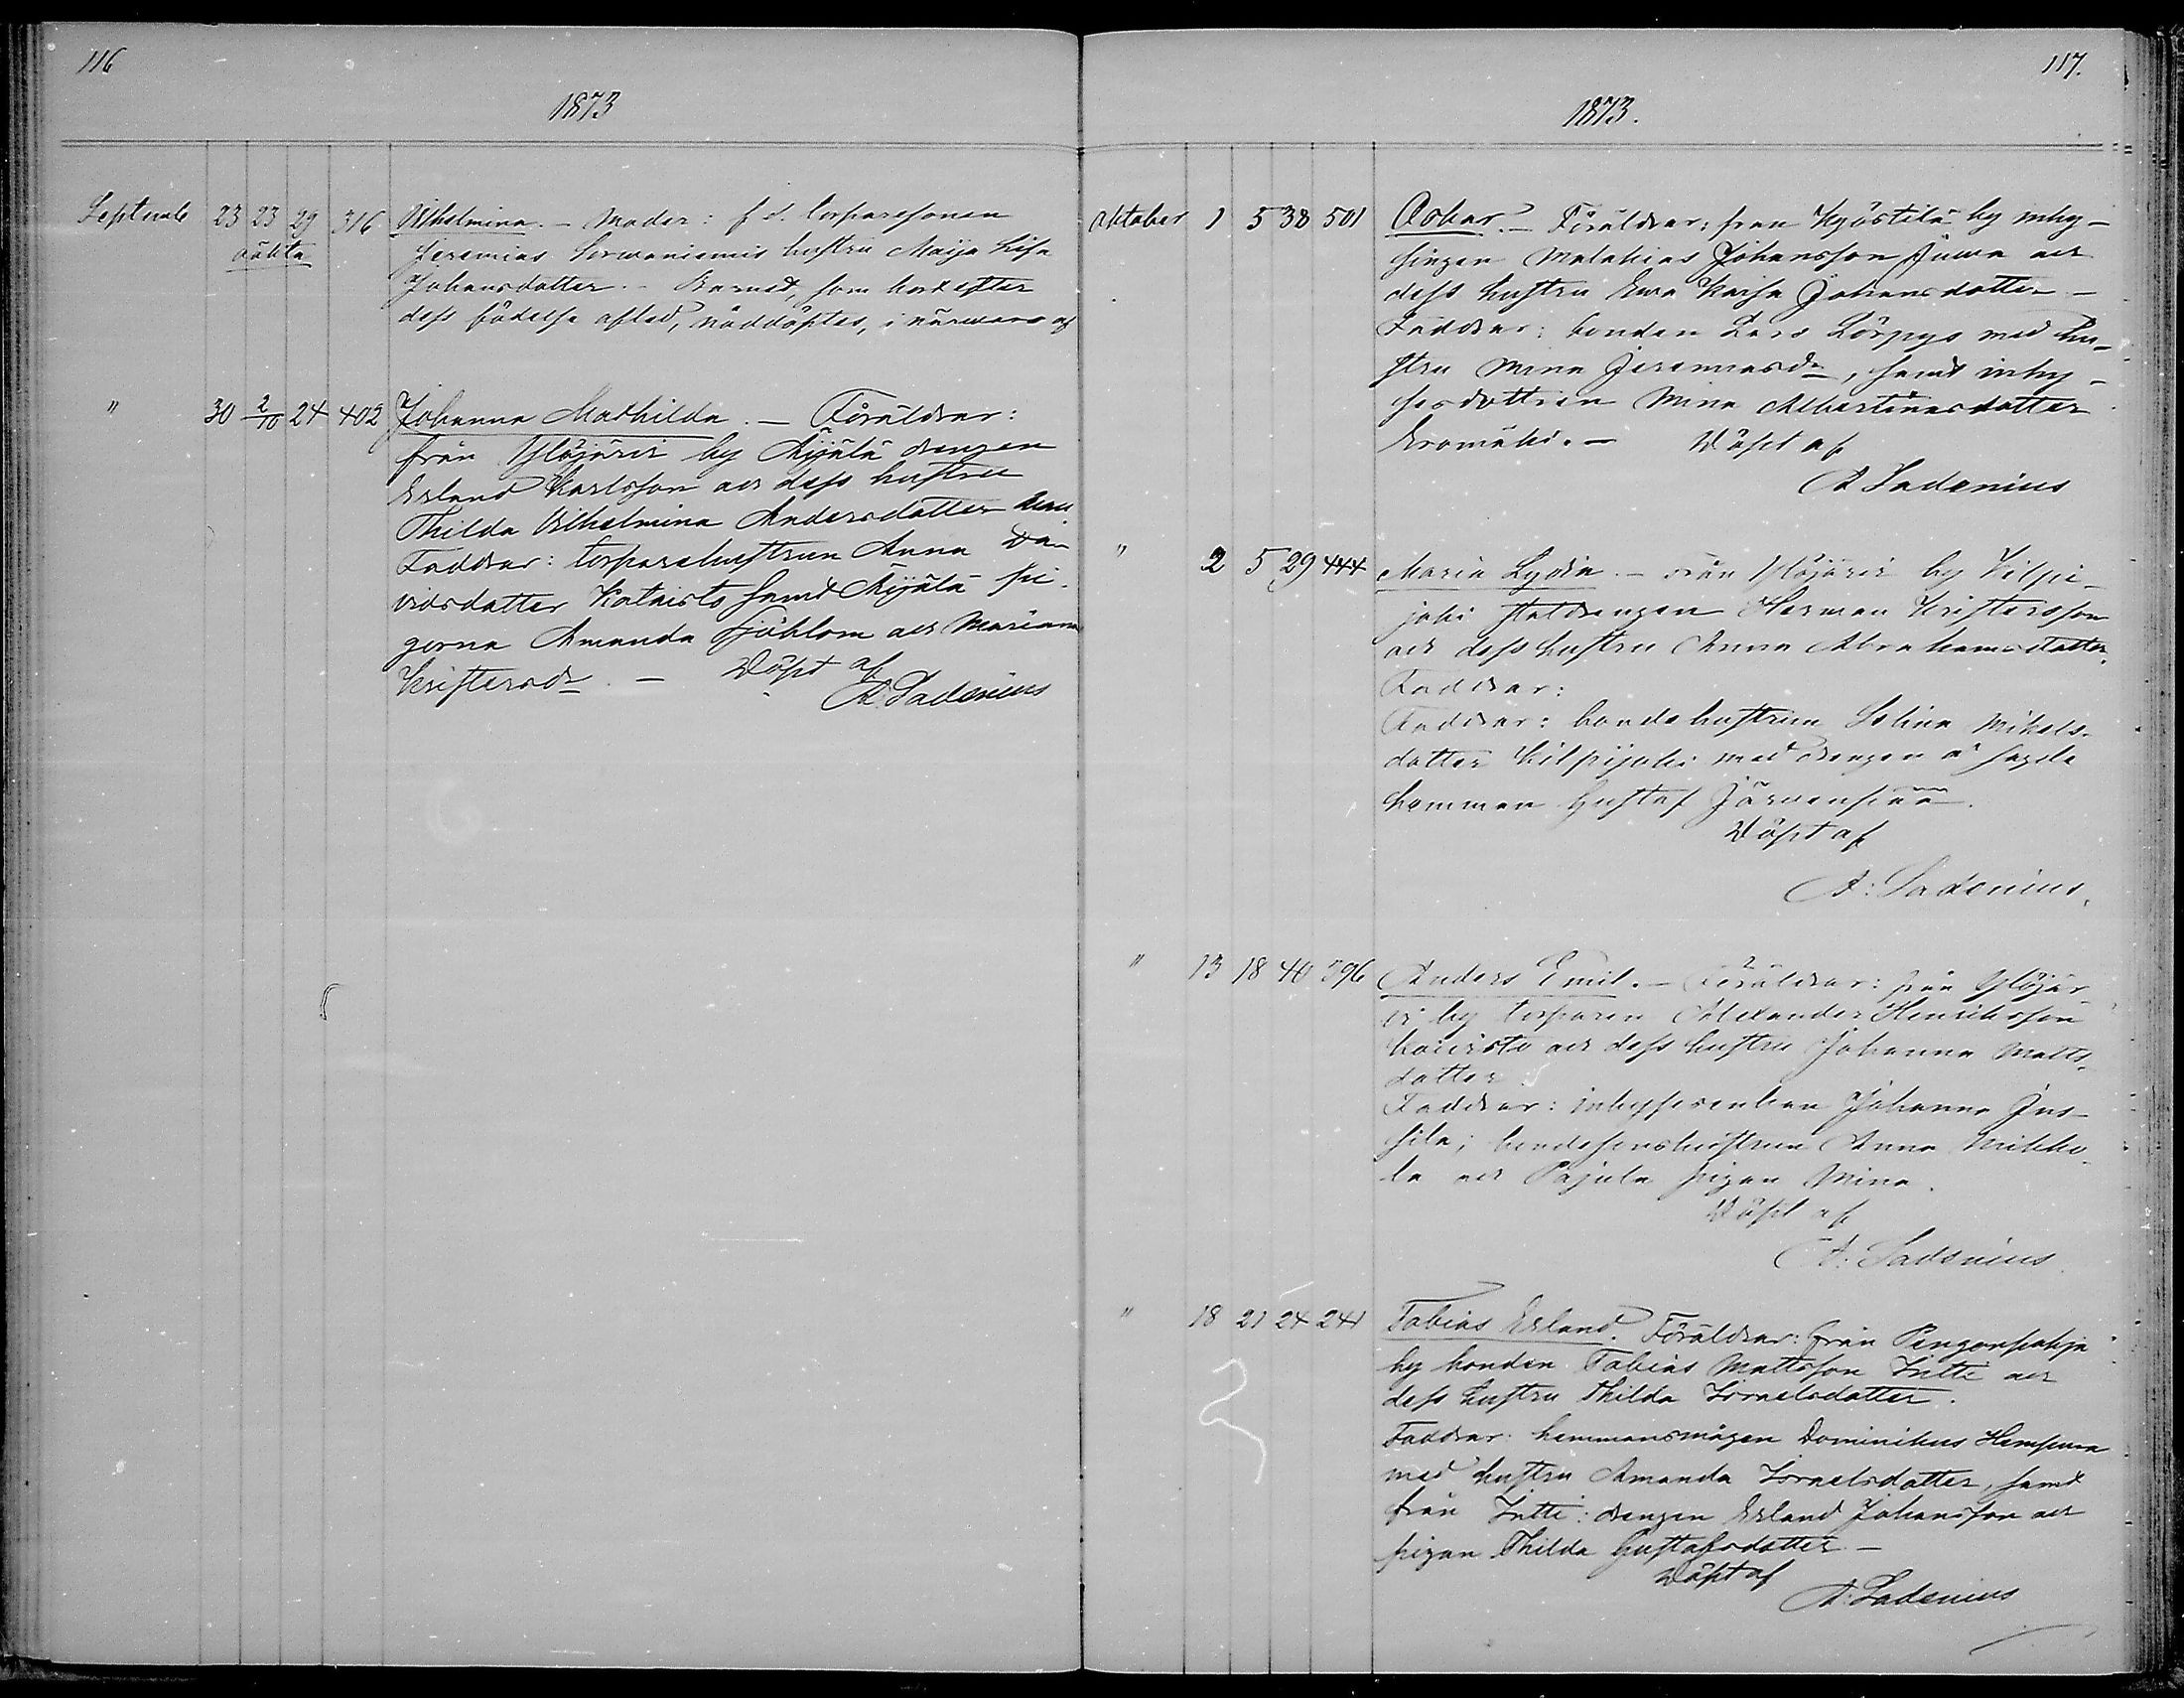 116
1873
Septemb 23 23 29 316 Wilhelmina. – Moder: f. d. torparesonen
oäkta
Jeremias hustru Maija Lisa
Johansdotter. – Barnet, som kort efter
dess födelse afled, nöddöptes, i närvaro af
" 30 2/10 24 402 Johanna Mathilda. – Föräldrar:
från Ylöjärvi by Äijälä drengen
Erland Karlsson och dess hustru
Thilda Wilhelmina Andersdotter
Faddrar: torparehustrun Anna Da-
vidsdotter Katajisto samt Äijälä pi-
gorna Amanda Sjöblom och Mariana
Kristersdr. – Döpt af
A. Ladenius
117.
1873.
Oktober 1 5 38 501 Oskar. – Föräldrar: från Kyöstilä by inhy-
singen Malakias Johansson och
dess hustru Ewa Kaisa Johansdotter –
Faddrar: bonden Lars Lörpys med hu-
stru Mina Jeremiasdr, samt inhy-
sesdottren Mina Albertinasdotter
Kromäki. – Döpt af
A Ladenius
" 2 5 29 444 Maria Lydia. – från Ylöjärvi by Kilpi-
joki Staldrengen Herman Kristersson
och dess hustru Anna Abrahamsdotter.
Faddrar:
Faddrar: bondehustrun Selina Mikels-
dotter Kilpijoki med drengen å sagde
hemman Gustaf Järvenpää.
Döpt af
A: Ladenius.
" 13 18 40 396 Anders Emil. – Föräldrar: från Ylöjär-
vi by torparen Alexander Henriksson
Koivisto och dess hustru Johanna Matts-
dotter.
Faddrar: inhysesenkan Johanna Jus-
sila; bondesonshustrun Anna Mikko-
la och Pajula pigan Mina.
Döpt af
A: Ladenius
" 18 21 24 241 Tobias Erland. Föräldrar: från Pengonpohja
by bonden Tobias Mattsson Intti och
dess hustru Thilda Israelsdotter.
Faddrar: hemmansmågen Dominikus
med hustru Amanda Israelsdotter, samt
från Intti: drengen Erland Johansson och
pigan Thilda Gustafsdotter –
Döpt af
A: Ladenius